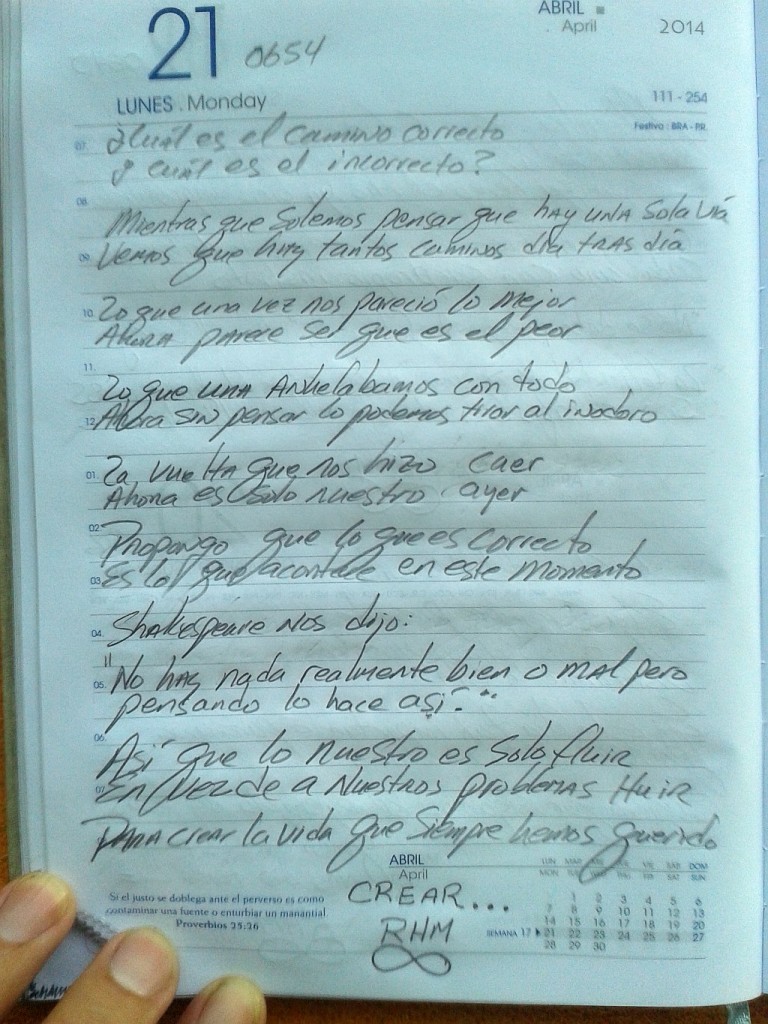 21 0654
ABRIL
April 2014
LUNES . Monday
111 - 254
Festivo : BRA - PR.
07.
¿Cuál es el camino correcto
y cuál es el incorrecto?
08.
Mientras que solemos pensar que hay una sola vía
09.
Vemos que hay tantos caminos día tras día
10.
Lo que una vez nos pareció lo mejor
Ahora parece ser que es el peor
11.
Lo que una Anhelabamos con todo
12.
Ahora sin pensar lo podemos tirar al inodoro
01.
La vuelta que nos hizo caer
Ahora es solo nuestro ayer
02.
Propongo que lo que es correcto
03.
Es lo que acontece en este momento
04.
Shakespeare nos dijo:
05.
"No hay nada realmente bien o mal pero
pensando lo hace así."
06.
Así que lo nuestro es solo fluir
07.
En vez de a nuestros problemas Huir
Para crear la vida que siempre hemos querido
CREAR...
RHM
Si el justo se doblega ante el perverso es como
contaminar una fuente o enturbiar un manantial
Proverbios 25:26
ABRIL
April
LUN MAR MIE JUE VIE SAB DOM
MON SAT SUN
1 2 3 4 5 6
7 8 9 10 11 12 13
14 15 16 17 18 19 20
SEMANA 17 21 22 23 24 25 26 27
28 29 30